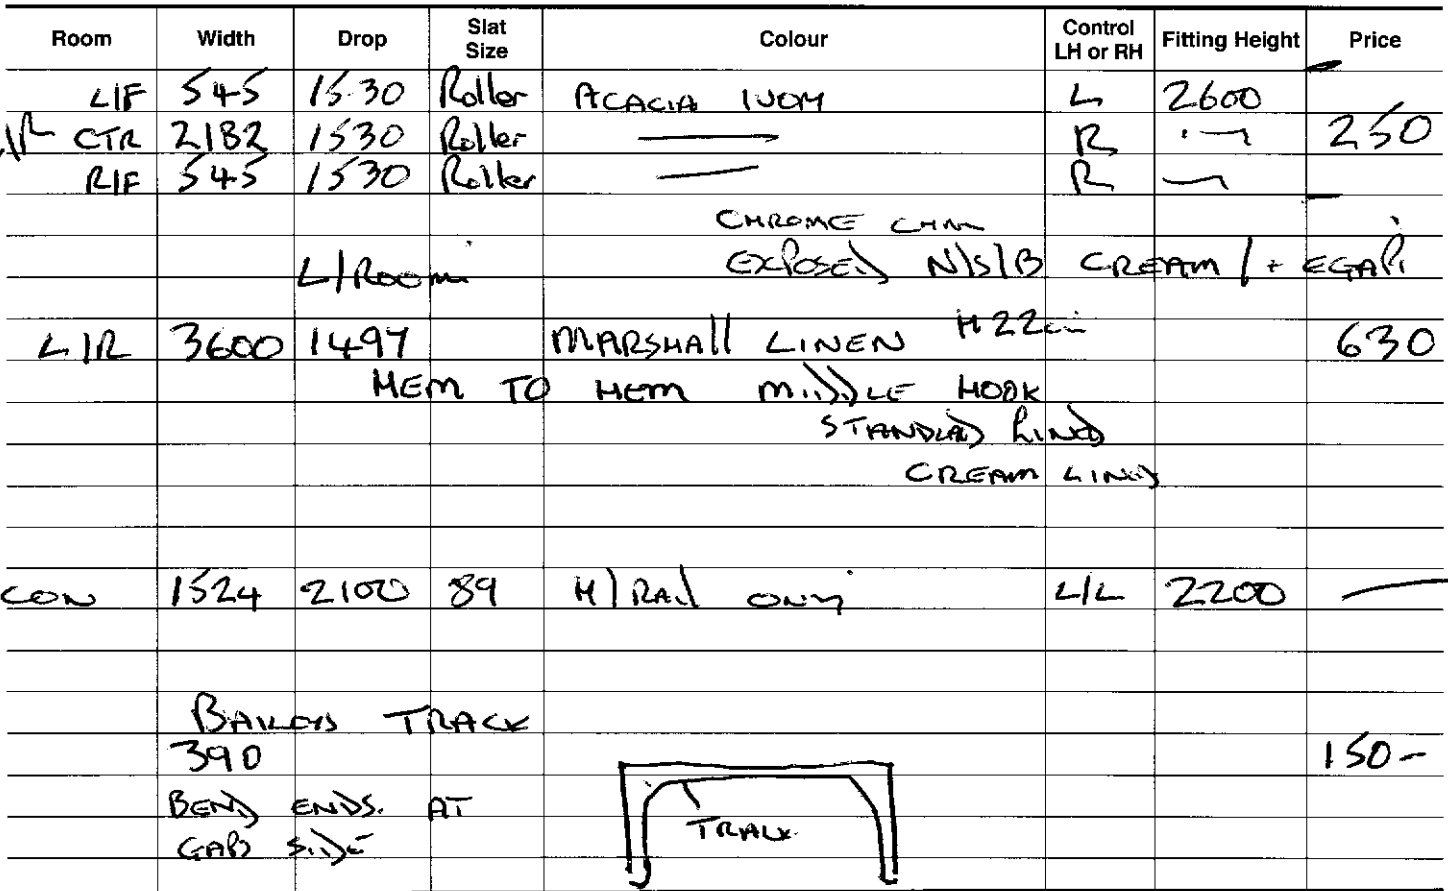 Room Width Drop Slat Size Colour Control LH or RH Fitting Height Price
L/F 545 1530 Roller ACACIA IVORY L 2600
CTR 2182 1530 Roller R 250
R/F 545 1530 Roller R
CHROME CHAIN
L/ROOM EXPOSED N/S/B CREAM / +
L/R 3600 1497 MARSHALL LINEN H22cm 630
HEM TO HEM MIDDLE HOOK
STANDARD LINED
CREAM LINING
CON 1524 2100 89 H/RAIL ONLY L/L 2200
BAILEYS TRACK
390 150-
BEND ENDS. AT TRACK
SIDE